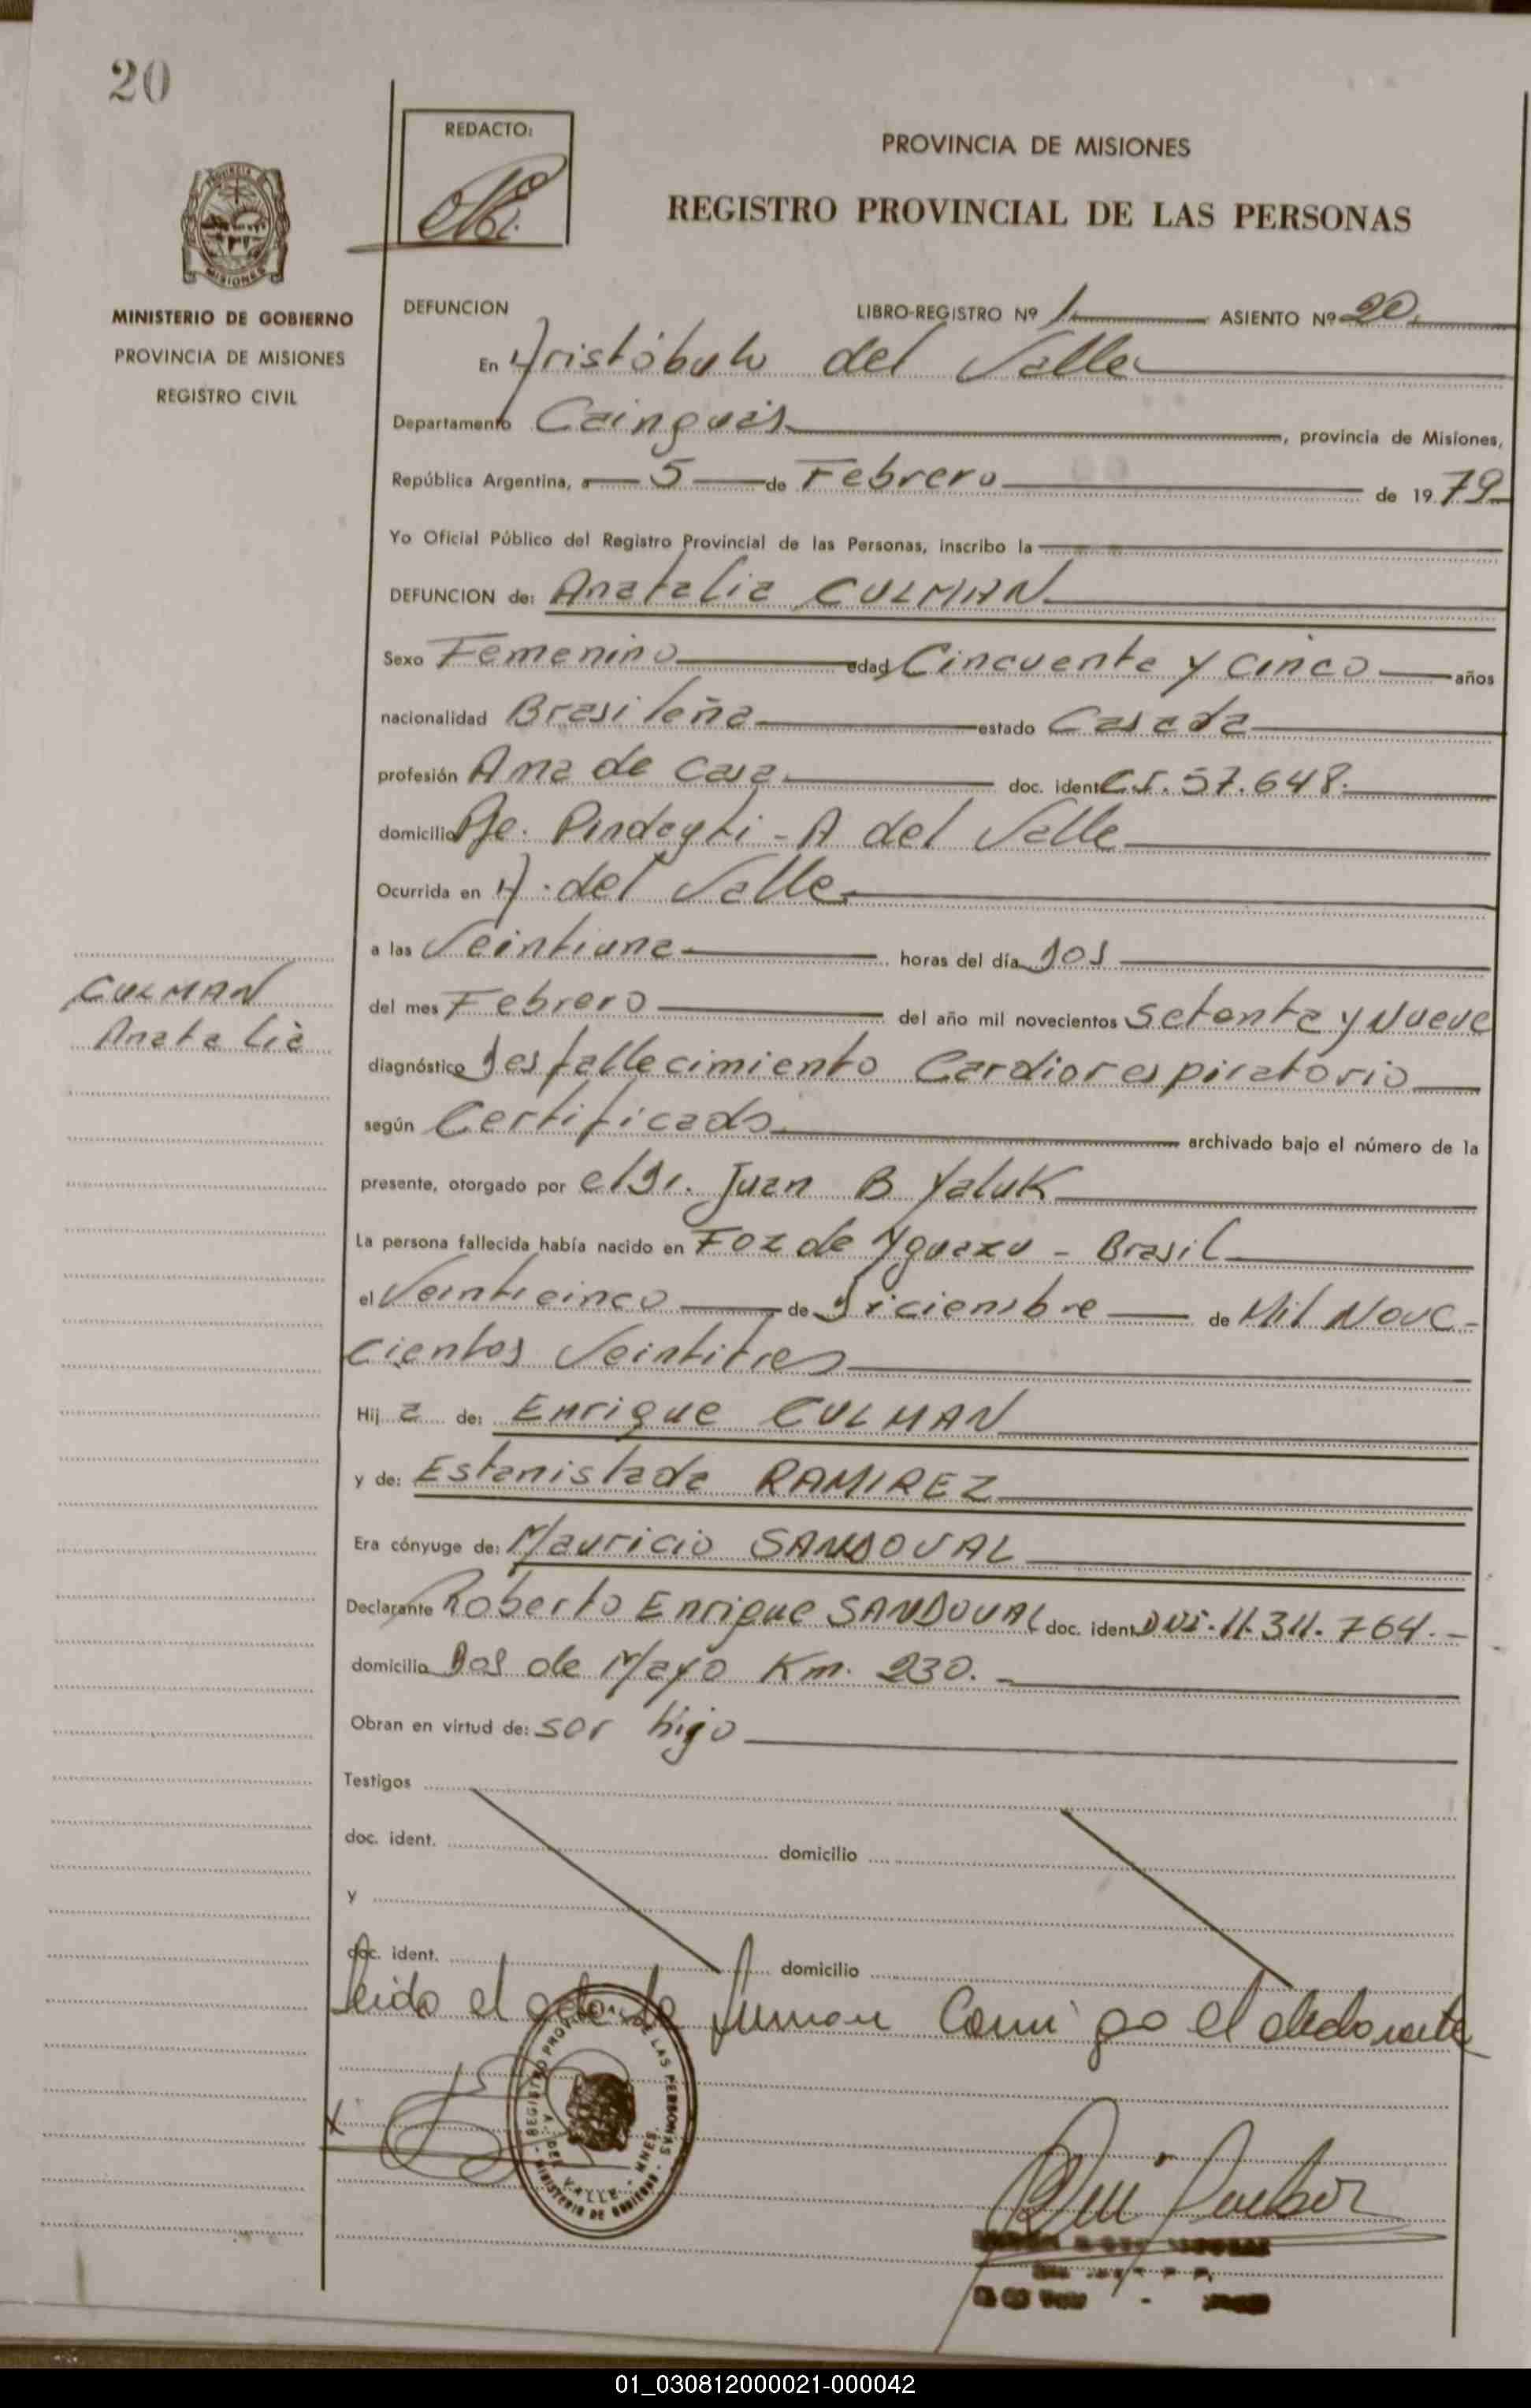 20
REDACTO:
PROVINCIA DE MISIONES
REGISTRO PROVINCIAL DE LAS PERSONAS
MISIONES
MINISTERIO DE GOBIERNO
PROVINCIA DE MISIONES
REGISTRO CIVIL
DEFUNCION LIBRO-REGISTRO Nº 1 ASIENTO Nº 20
En Aristóbulo del Valle
Departamento Cainguás, provincia de Misiones,
República Argentina, a 5 de Febrero de 1979
Yo Oficial Público del Registro Provincial de las Personas, inscribo la
DEFUNCION de: Anatalia CULMAN
Sexo Femenino edad Cincuenta y cinco años
nacionalidad Brasileña estado Casada
profesión Ama de casa doc. ident. C.I. 57.648.
domicilio Pje. Pindayti - A del Valle
Ocurrida en A. del Valle
a las Veintiuna horas del día Dos
del mes Febrero del año mil novecientos Setenta y Nueve
CULMAN
Anatalia
diagnóstico Desfallecimiento Cardiorespiratorio
según Certificado archivado bajo el número de la
presente, otorgado por el Dr. Juan B Yaluk
La persona fallecida había nacido en Foz de Yguazu - Brasil
el Veinticinco de Diciembre de Mil Nove-
cientos Veintitres
Hija de: Enrique CULMAN
y de: Estanislada RAMIREZ
Era cónyuge de: Mauricio SANDOVAL
Declarante Roberto Enrique SANDOVAL doc. ident. DNI. 11.311.764.-
domicilio Dos de Mayo Km. 230.-
Obran en virtud de: ser hijo
Testigos
doc. ident. domicilio
y
doc. ident. domicilio
Leida el acta la firman Conmigo el declarante
X
REGISTRO PROVINCIAL DE LAS PERSONAS
A. DEL VALLE - MNES.
MINISTERIO DE GOBIERNO
01_030812000021-000042